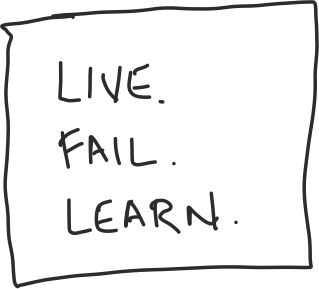 LIVE.
FAIL.
LEARN.